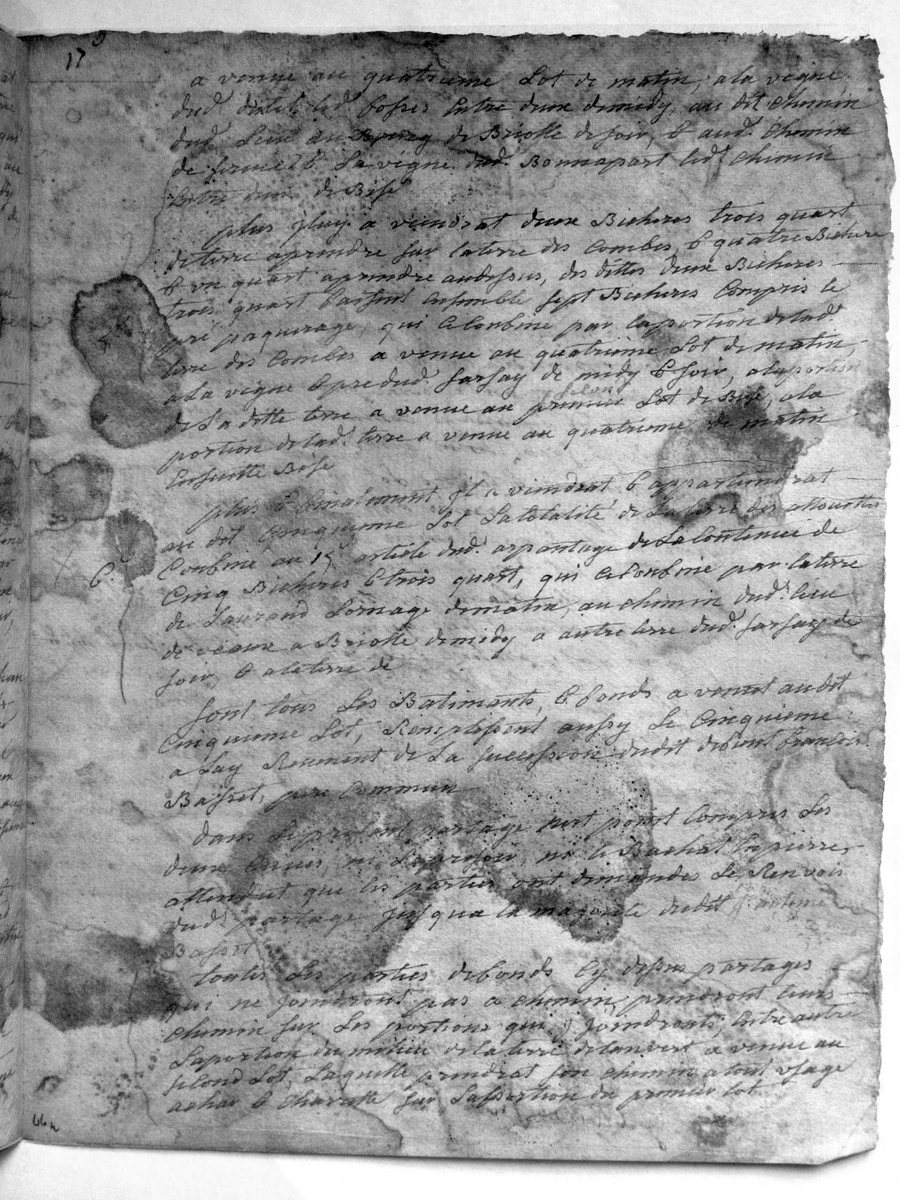 17
a venue au quatrieme Lot de matin, a la vigne
dud. led. fosses Entre deux de midy, au dit chemin
dud. au Bourg de Briolle de soir, & aud. chemin
de La vigne dud. Bonnapart led. chemin
Entre deux de Bise
plus y a viendrat deux Bicherés trois quart
de terre aprendre sur la terre des Combes, & quatre Bicheré
& un quart aprendre audessus, des dittes deux Bicherés
trois quart faisant Ensemble sept Bicherés Compris le
paquerage, qui Ce Confine par la portion de lad.
terre des Combes a venue au quatrieme Lot de matin,
a La vigne & pré dud. farsay de midy & soir, a la portion
de La ditte terre a venue au premier Lot de Bise, a la
second
portion de lad. terre a venue au quatrieme de matin
Ensuitte Bise
plus & finalment, Il a viendrat & appartiendrat
au dit Cinquieme Lot La totalité de La terre des allouettes
6.
Confiné au 15 article dud. arpantage de La Contenüe de
Cinq Bicherés & trois quart, qui Ce Confine par la terre
de Laurand Lornage de matin, au chemin dud. lieu
de veaux a Briolle de midy a autre terre dud. farsay de
soir, & a la terre de
Sont tous Les Batimants, & fonds a venus au dit
Cinquieme Lot, Remplissent aussy Le Cinquieme
a Lay de La succession dudit defunt françois
Basset, pere Commun
Dans Le present partage n'est point Compris Les
deux Cuves, ni Le pressoir, ni le Bachat En pierre,
attendut que les parties ont demandés Le Renvois
dud. partage jusqua la majorité dudit
Basset
toutes Les parties de fonds Cy dessus partagés
qui ne joindront pas a chemin, prendront leurs
chemin sur Les portions qui y joindronts, Entre autre
La portion du milieu de la terre a venue au
second Lot, Laquelle prendrat son chemin a tous usage
a char & charette sur La portion du premier Lot